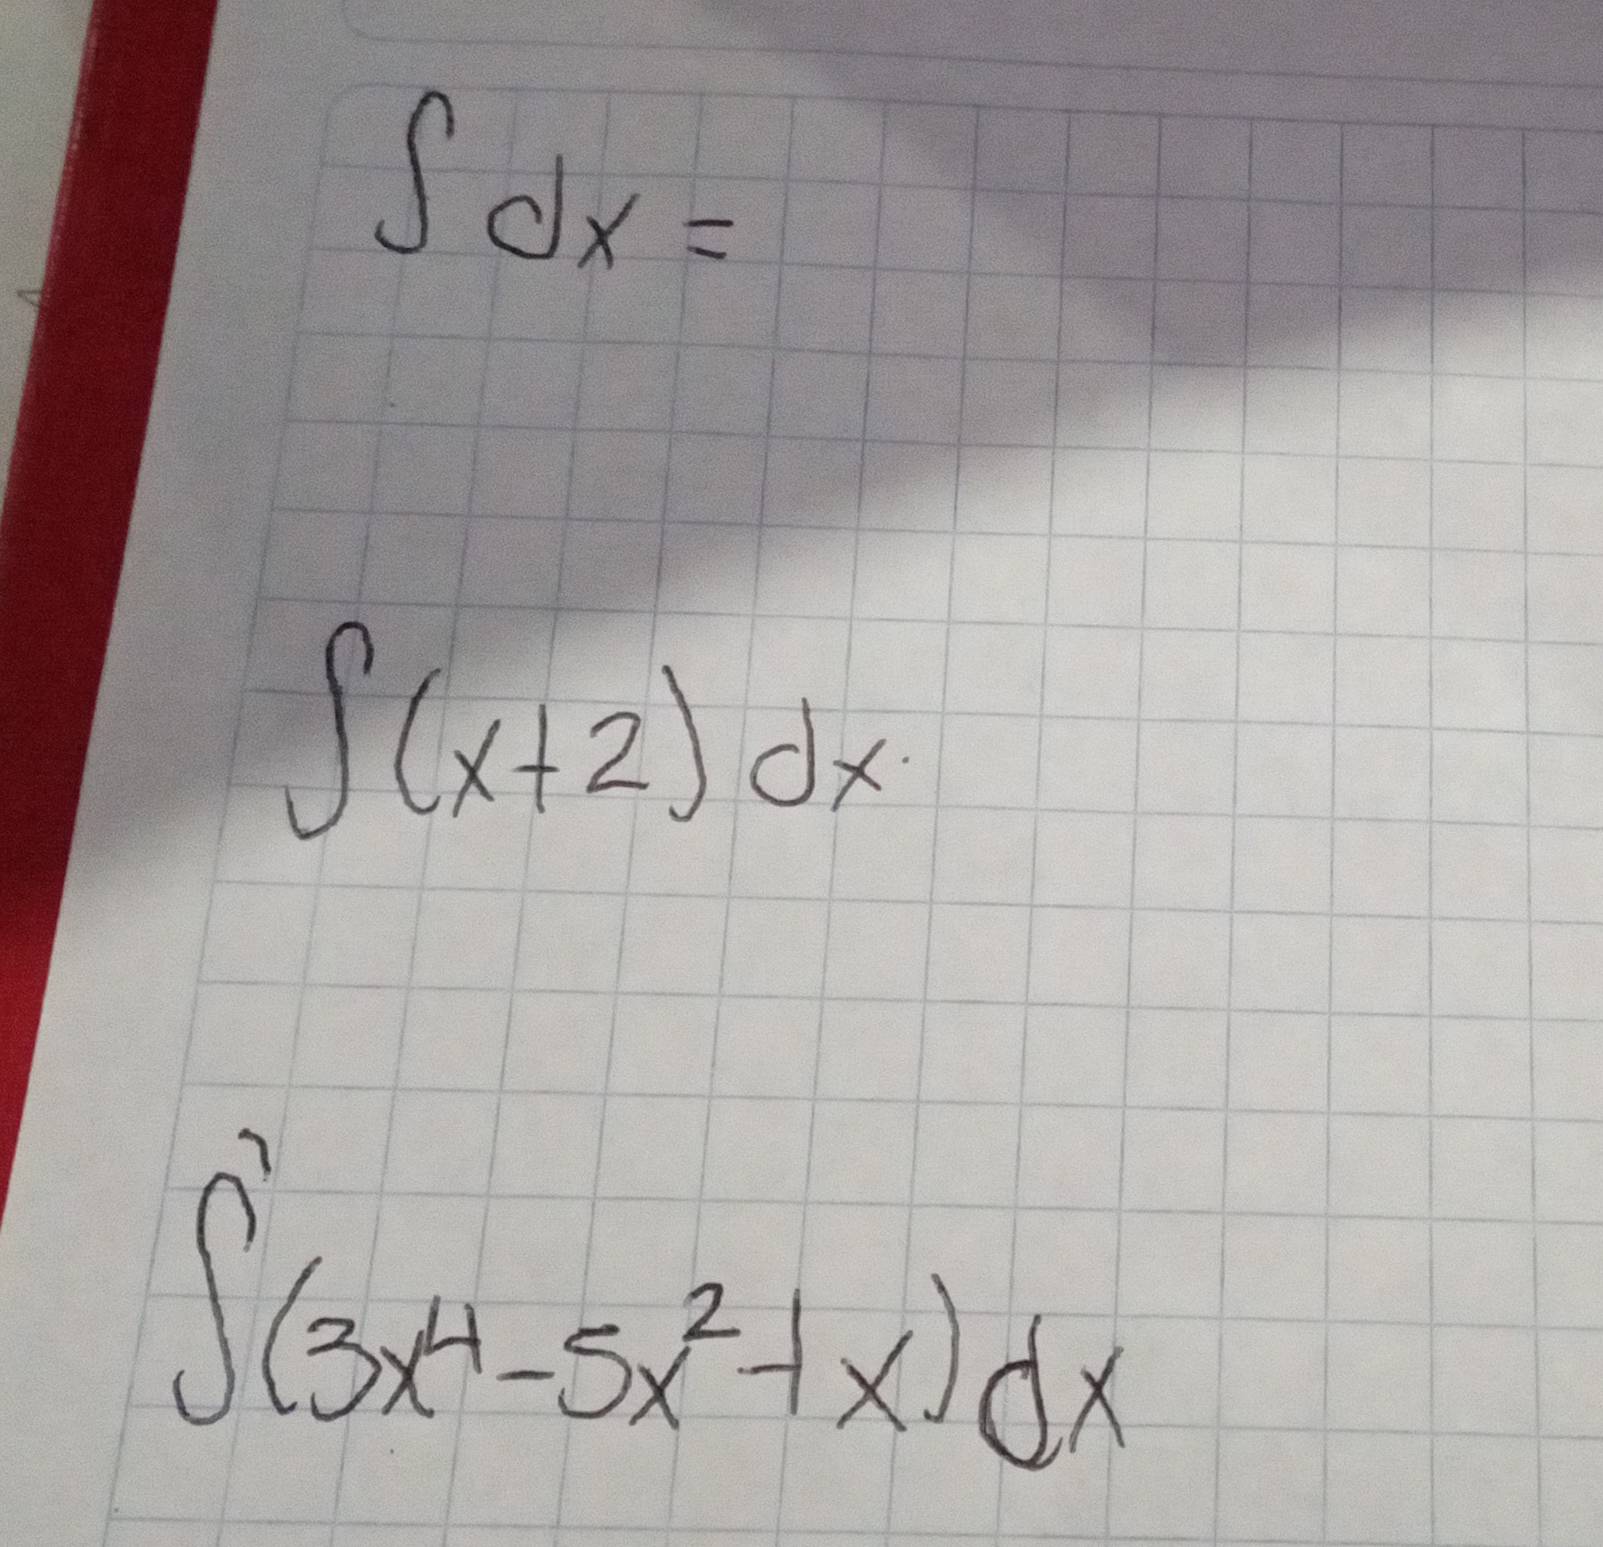 ∫ dx =
∫(x+2) dx
∫(3x⁴-5x²+x) dx